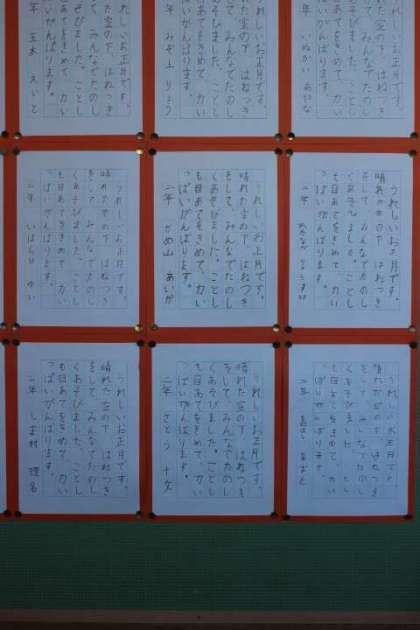 れしいお正月です。
た空の下、はねつき
て、みんなでたのし
そびました。ことし
あてをきめて、力い
いがんばります。
年
れしいお正月です。
た空の下、はねつき
て、みんなでたのし
そびました。ことし
あてをきめて、力い
いがんばります。
年 みぞ上 りょう
れしいお正月です。
た空の下、はねつき
て、みんなでたのし
そびました。ことし
あてをきめて、力い
いがんばります。
年 玉木 えいと
うれしいお正月です。
晴れた空の下、はねつき
をして、みんなでたのし
くあそびました。ことし
も目あてをきめて、力い
っぱいがんばります。
二年
うれしいお正月です。
晴れた空の下、はねつき
をして、みんなでたのし
くあそびました。ことし
も目あてをきめて、力い
っぱいがんばります。
二年 かめ山 あいか
うれしいお正月です。
晴れた空の下、はねつき
をして、みんなでたのし
くあそびました。ことし
も目あてをきめて、力い
っぱいがんばります。
二年
うれしいお正月です。
晴れた空の下、はねつき
をして、みんなでたのし
くあそびました。ことし
も目あてをきめて、力い
っぱいがんばります。
二年
うれしいお正月です。
晴れた空の下、はねつき
をして、みんなでたのし
くあそびました。ことし
も目あてをきめて、力い
っぱいがんばります。
二年 さとう
うれしいお正月です。
晴れた空の下、はねつき
をして、みんなでたのし
くあそびました。ことし
も目あてをきめて、力い
っぱいがんばります。
二年 しま村 理名